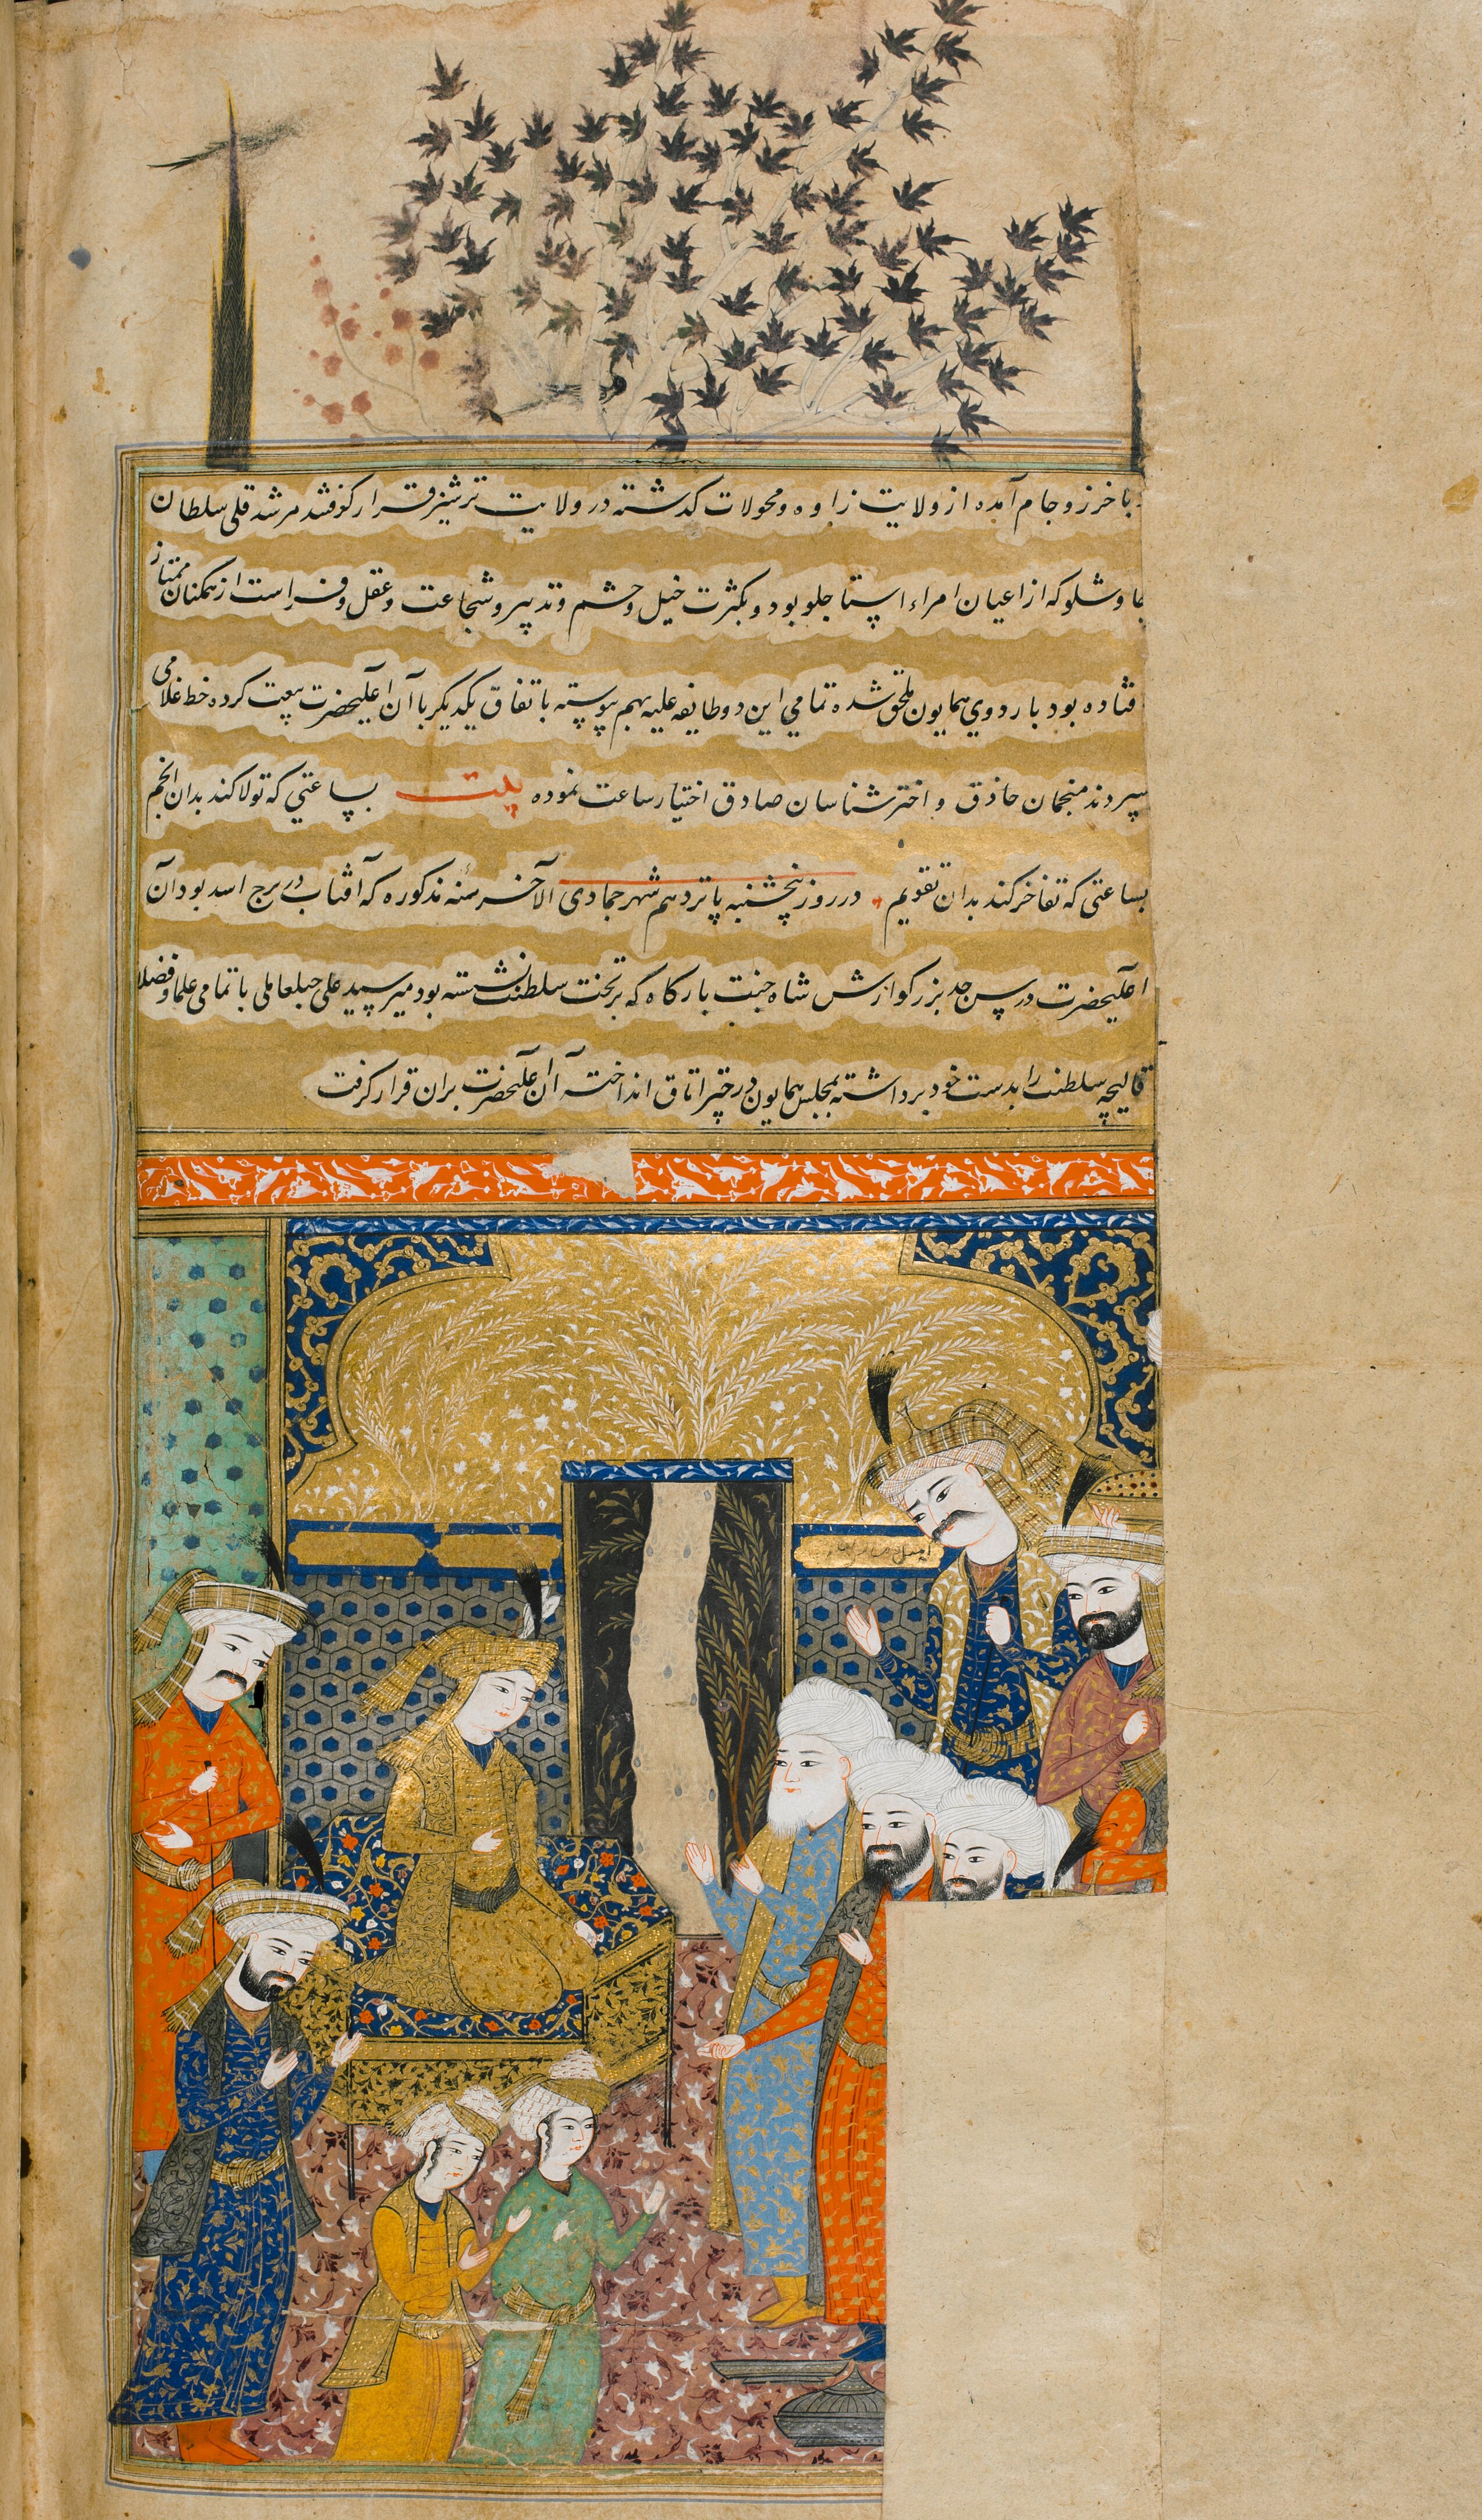 باخرز و جام آمده از ولایت زاوه و محولات کدشته در ولایت ترشیز قرار کرفتند مرشد قلی سلطان
شاملو که از اعیان امراء استاجلو بود و بکثرت خیل و حشم و تدبیر و شجاعت و عقل و فراست از همکنان ممتاز
فتاده بود باردوی همایون ملحق شده تمامی این دو طایفه علیه بهم پیوسته باتفاق یکدیکر با آن اعلیحضرت بیعت کرده خط غلامی
سپردند منجمان حاذق و اخترشناسان صادق اختیار ساعت نموده بیت بساعتی که تولا کند بدان انجم
بساعتی که تفاخر کند بدان تقویم در روز پنجشنبه پانزدهم شهر جمادی الآخر سنه مذکوره که آفتاب در برج اسد بود آن
اعلیحضرت در سن جد بزرکوارش شاه جنت بارکاه که بر تخت سلطنت نشسته بود میر سید علی جبلعاملی با تمامی علما و فضلا
قالیچه سلطنت را بدست خود برداشته بمجلس همایون در انداخته آن اعلیحضرت بران قرار کرفت